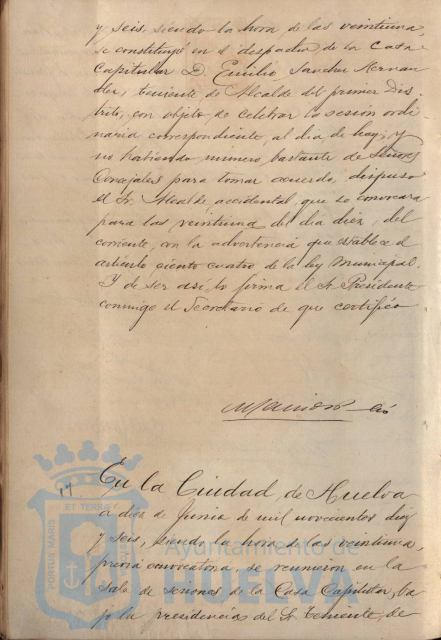 y seis, siendo la hora de las veintiuna,
se constituyó en el despacho de la Casa
Capitular D. Emilio Sanchez Hernan-
dez, teniente de Alcalde del primer Dis-
trito, con objeto de celebrar la sesión ordi-
naria correspondiente, al dia de hoy; y
no habiendo número bastante de Señores
Concejales para tomar acuerdo, dispuso
el Sr. Alcalde accidental, que se convocara
para las veintiuna del dia diez, del
corriente, con la advertencia que establece el
artículo ciento cuatro de la ley Municipal.
Y de ser asi, lo firma el Sr. Presidente
conmigo el Secretario de que certifico
17 En la Ciudad de Huelva
a diez de Junio de mil novecientos diez
y seis, siendo la hora de las veintiuna,
previa convocatoria, se reunieron en la
Sala de sesiones de la Casa Capitular, ba-
jo la presidencia del Sr. Teniente, de
PORTUS MARIS ET TERRAE
Ayuntamiento de
HUELVA